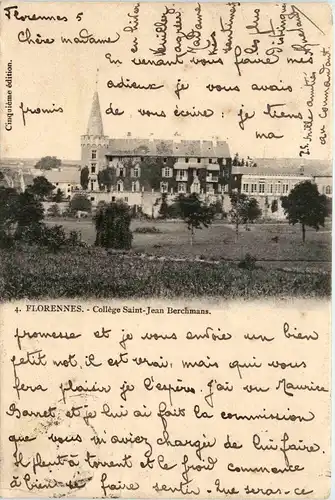 Florennes 5
Chère madame,
En venant vous faire mes
adieux je vous avais
promis de vous écrire: je tiens
ma
Cinquième édition.
4. FLORENNES. - Collège Saint-Jean Berchmans.
promesse et je vous envoie un bien
petit mot, il est vrai, mais qui vous
fera plaisir je l'espère. J'ai vu Maurice
Barret, et je lui ai fait la commission
que vous m'aviez chargée de lui faire.
Il pleut à torrent et le froid commence
à bien se faire sentir. Que sera-ce
en hiver
Veuillez
agréer
Madame
mes
sentiments
les plus
distingués
mille amitiés
au commandant